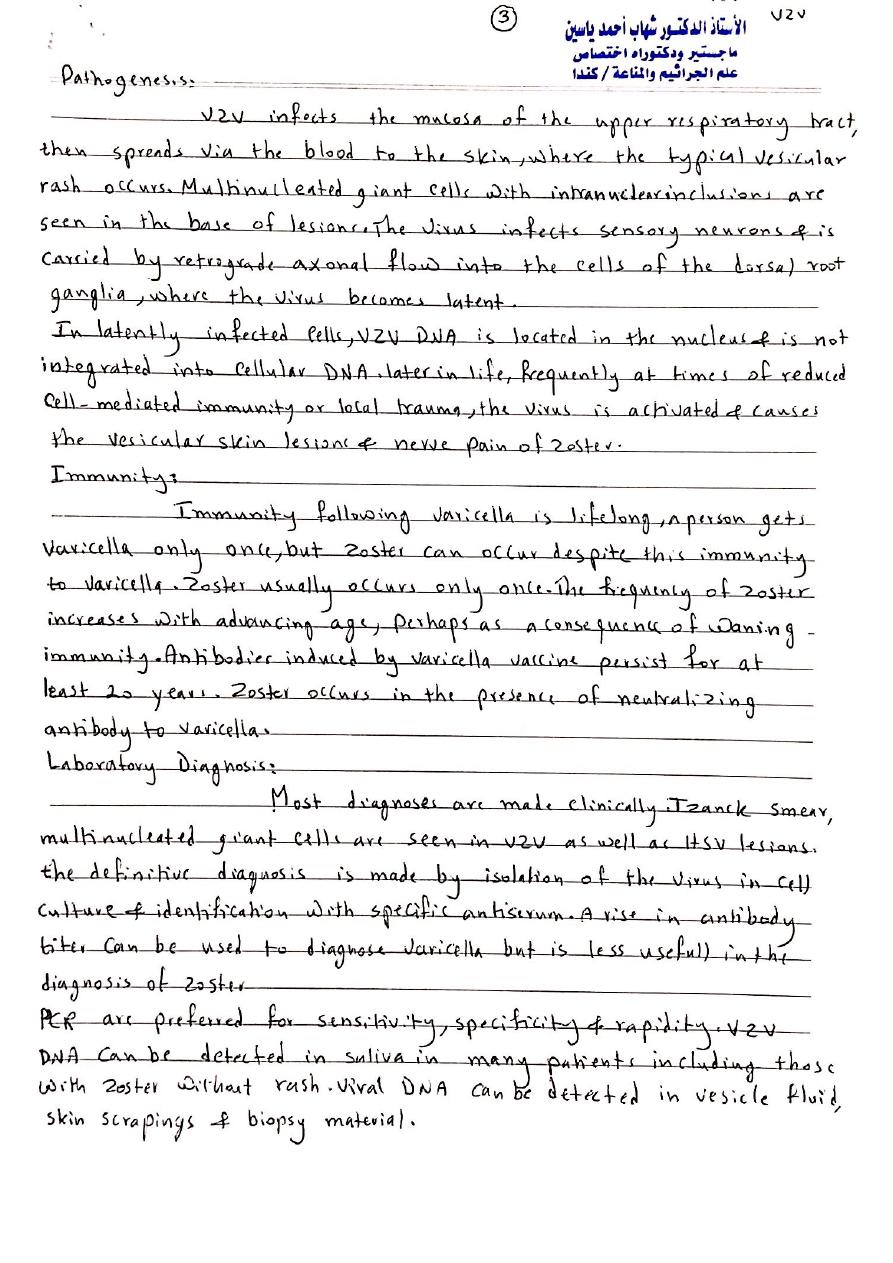 ③
VZV
الأستاذ الدكتور شهاب أحمد ياسين
ماجستير ودكتوراه اختصاص
علم الجراثيم والمناعة / كندا
Pathogenesis:
VZV infects the mucosa of the upper respiratory tract,
then spreads via the blood to the skin, where the typical vesicular
rash occurs. Multinucleated giant cells with intranuclear inclusions are
seen in the base of lesions. The virus infects sensory neurons & is
carried by retrograde axonal flow into the cells of the dorsal root
ganglia, where the virus becomes latent.
In latently infected cells, VZV DNA is located in the nucleus & is not
integrated into cellular DNA. later in life, frequently at times of reduced
cell-mediated immunity or local trauma, the virus is activated & causes
the vesicular skin lesions & nerve pain of zoster.
Immunity:
Immunity following varicella is lifelong, a person gets
varicella only once, but zoster can occur despite this immunity
to varicella. Zoster usually occurs only once. The frequency of zoster
increases with advancing age, perhaps as a consequence of waning -
immunity. Antibodies induced by varicella vaccine persist for at
least 20 years. Zoster occurs in the presence of neutralizing
antibody to varicella.
Laboratory Diagnosis:
Most diagnoses are made clinically. Tzanck smear,
multinucleated giant cells are seen in VZV as well as HSV lesions.
the definitive diagnosis is made by isolation of the virus in cell
culture & identification with specific antiserum. A rise in antibody
titer can be used to diagnose varicella but is less usefull in the
diagnosis of zoster
PCR are preferred for sensitivity, specificity & rapidity. VZV
DNA can be detected in saliva in many patients including those
with zoster without rash. Viral DNA can be detected in vesicle fluid,
skin scrapings & biopsy material.